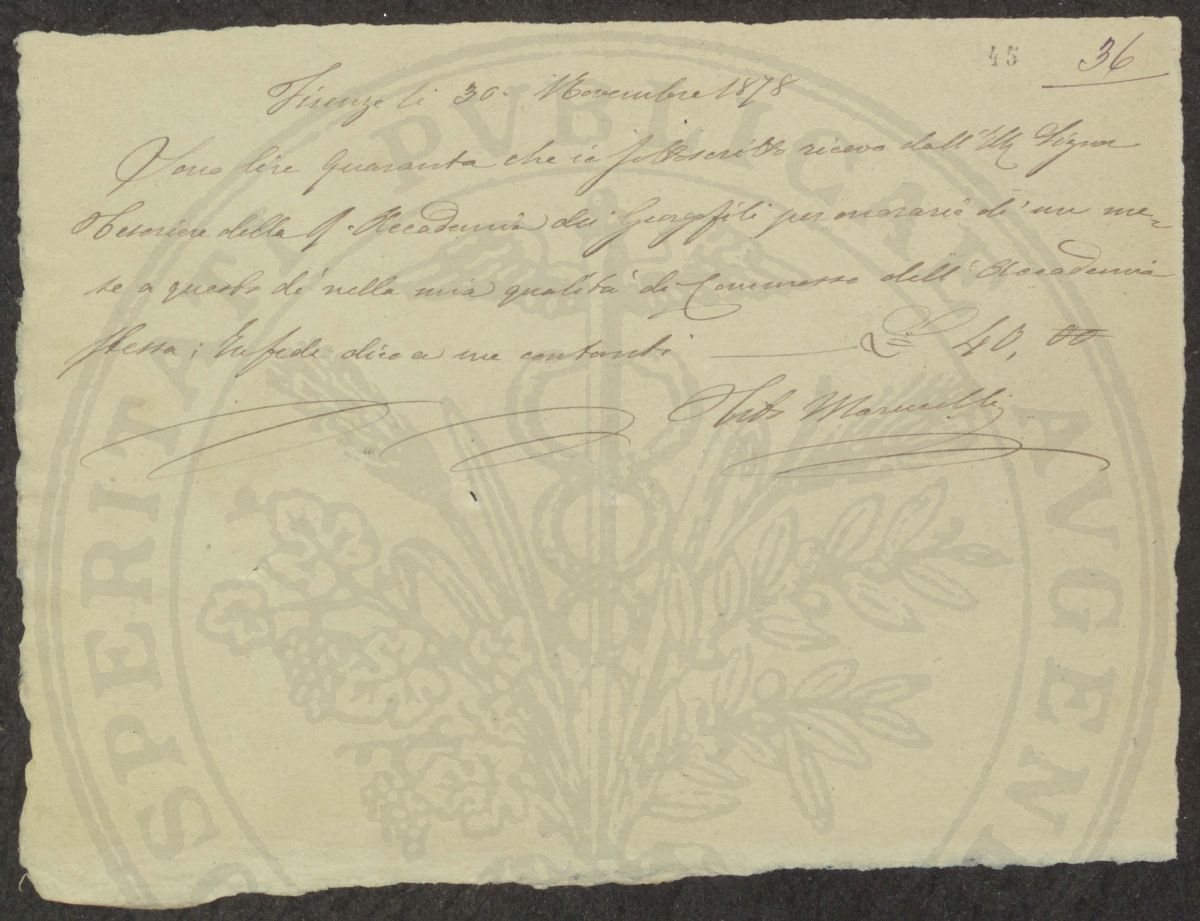 45 36
Firenze li 30. Novembre 1878
Sono lire quaranta che io sottoscritto ricevo dall'Ill Signor
Tesoriere della R. Accademia dei Georgofili per onorario di un me-
se a questo dì nella mia qualità di Commesso dell'Accademia
stessa; In fede dico a me contanti L 40,00
Marucelli
PROSPERITATI PVBLICAE AVGENDAE